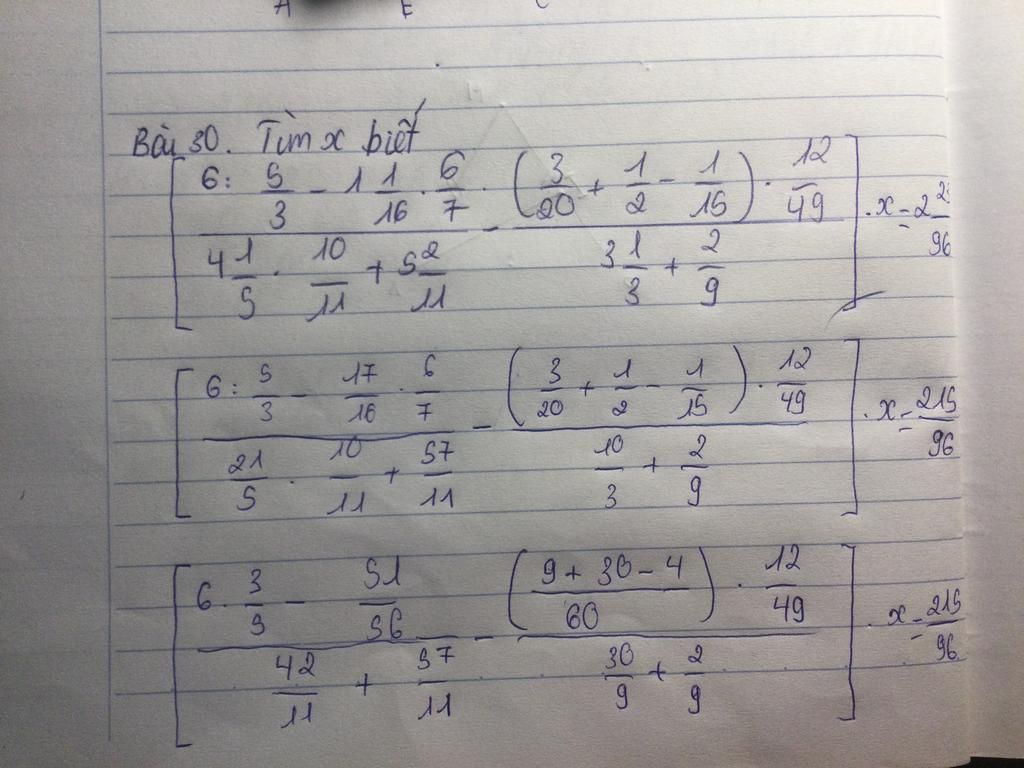 A E C
Bài 30. Tìm x biết
[ (6 : 5/3 - 1 1/16 . 6/7) / (4 1/5 . 10/11 + 5 2/11) - ((3/20 + 1/2 - 1/15) . 12/49) / (3 1/3 + 2/9) ] . x = 2 2/96
[ (6 : 5/3 - 17/16 . 6/7) / (21/5 . 10/11 + 57/11) - ((3/20 + 1/2 - 1/15) . 12/49) / (10/3 + 2/9) ] . x = 215/96
[ (6 . 3/5 - 51/56) / (42/11 + 57/11) - (((9 + 30 - 4)/60) . 12/49) / (30/9 + 2/9) ] . x = 215/96